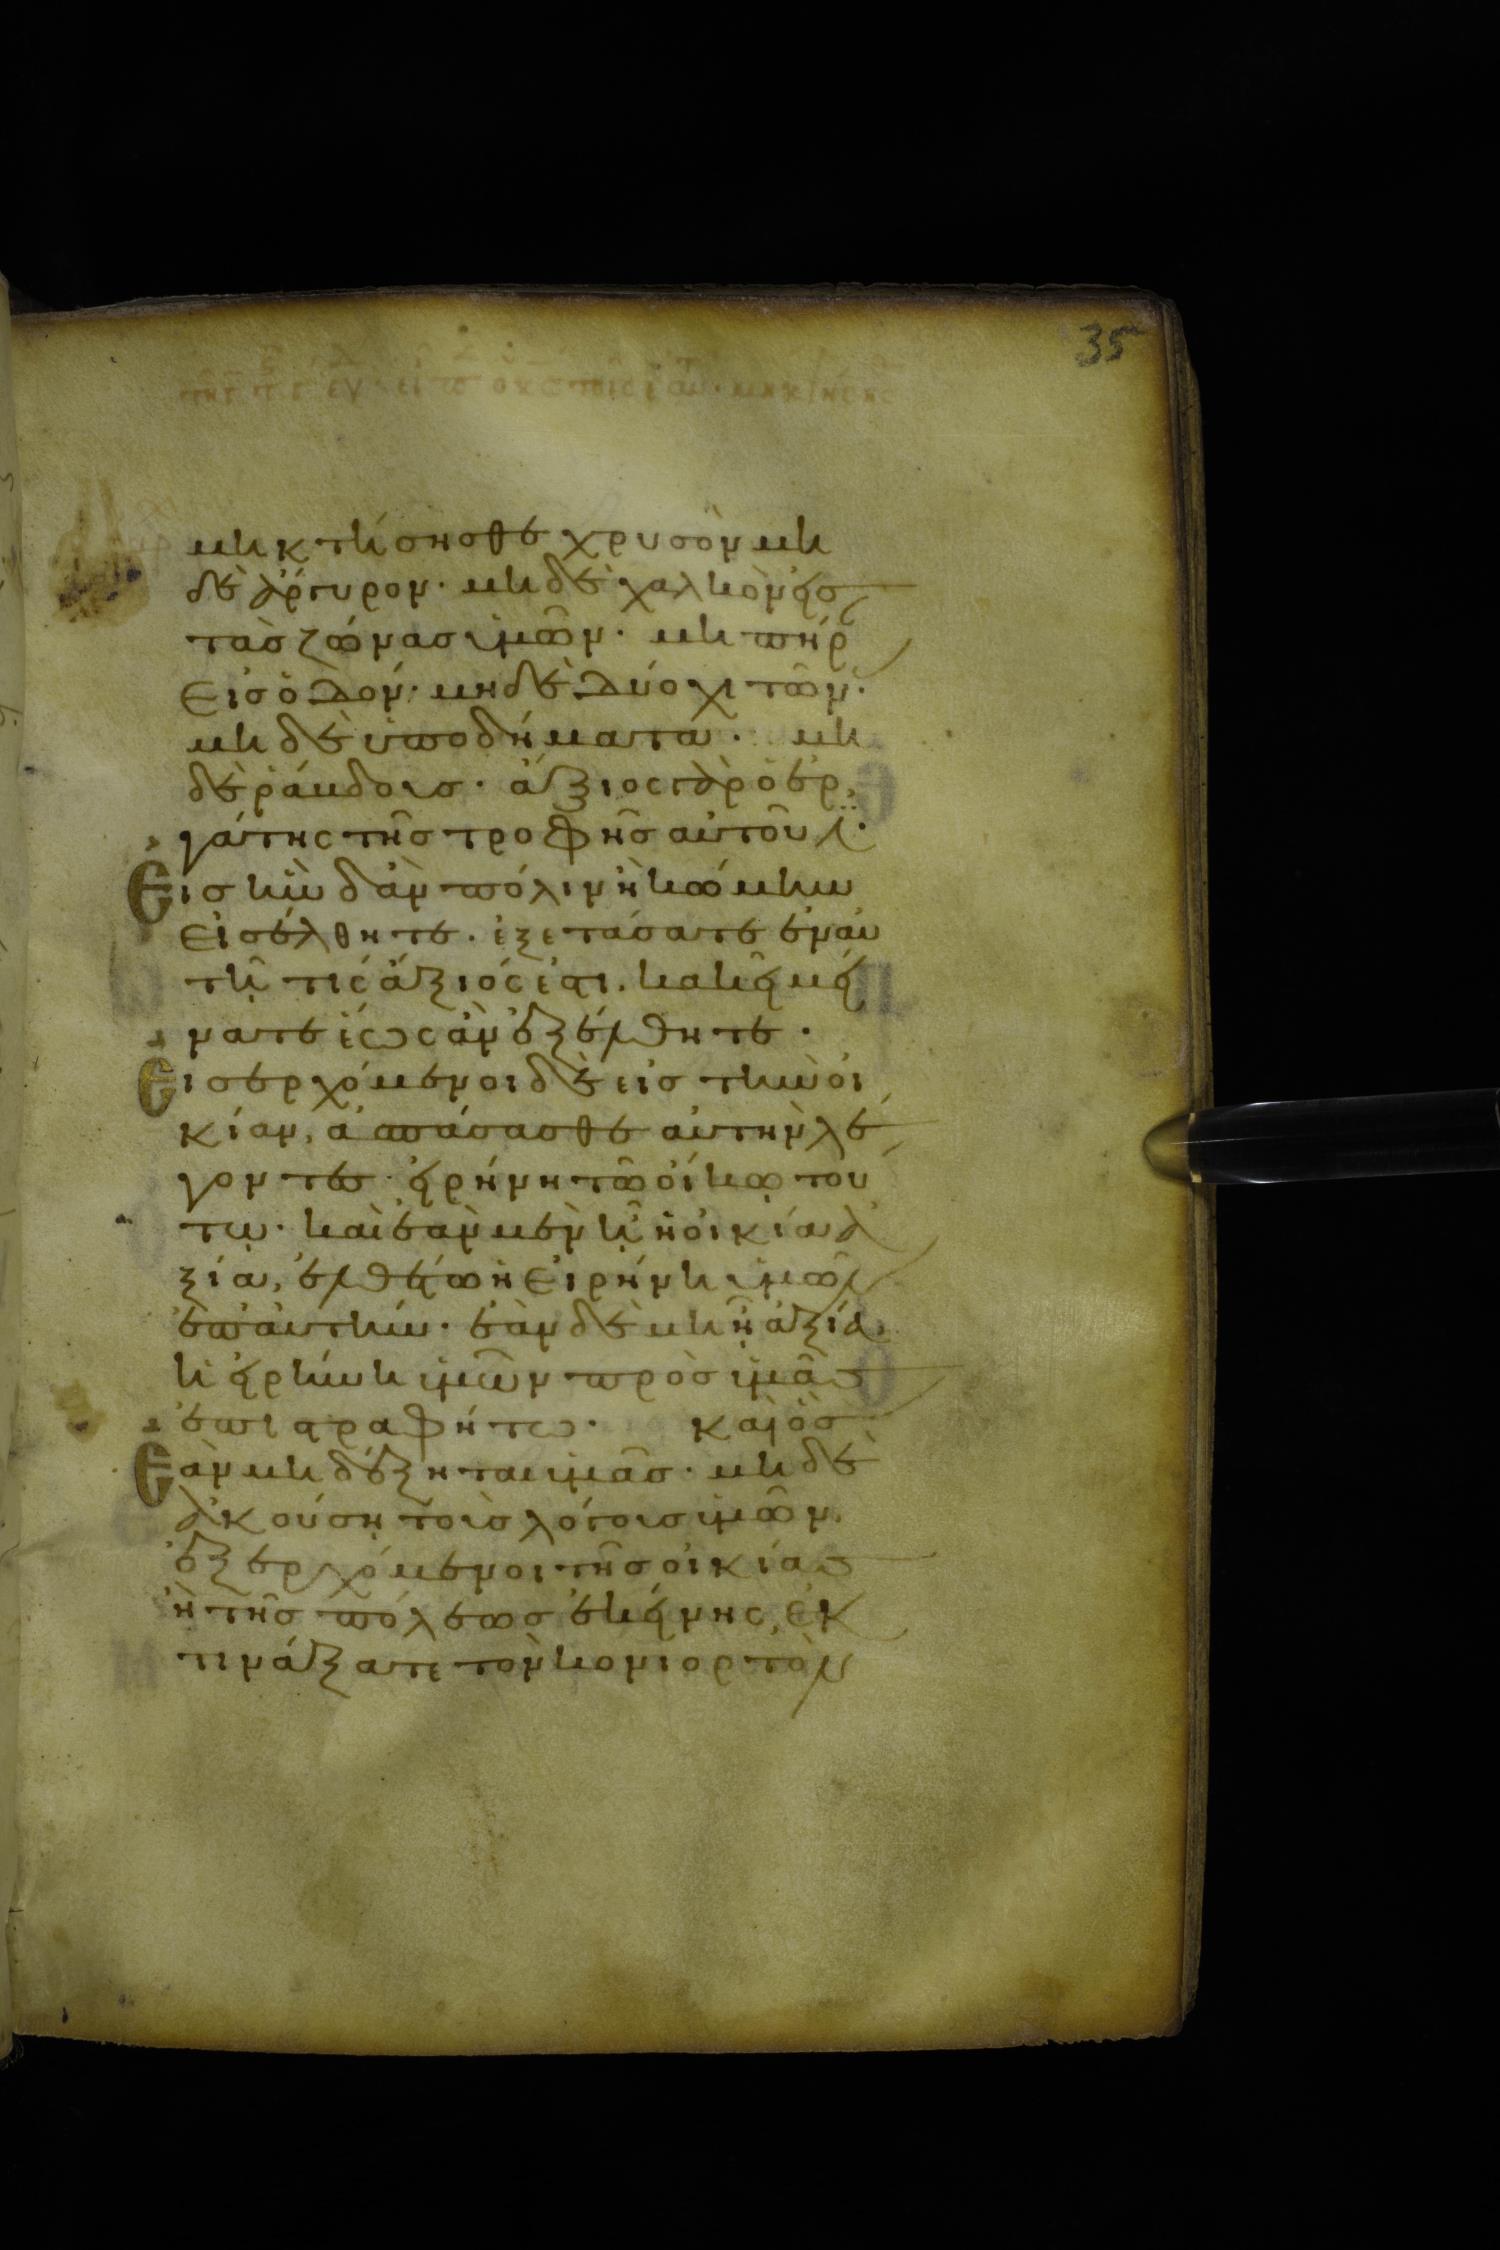 35
μὴ κτήσησθε χρυσὸν μη
δὲ ἄργυρον· μηδὲ χαλκὸν εἰς
τὰς ζώνας ὑμῶν· μὴ πήρ
εἰς ὁδόν· μηδὲ δύο χιτῶν·
μηδὲ ὑποδήματα· μη
δὲ ῥάβδοις· ἄξιος γὰρ ὁ ἐρ
γάτης τῆς τροφῆς αὐτοῦ
Εἰς ἣν δ' ἂν πόλιν ἢ κώμην
εἰσέλθητε· ἐξετάσατε ἐν αὐ
τῇ τίς ἄξιός ἐστι· κακεῖ μεί
νατε ἕως ἂν ἐξέλθητε·
Εἰσερχόμενοι δὲ εἰς τὴν οἰ
κίαν, ἀσπάσασθε αὐτὴν λέ
γοντες· εἰρήνη τῷ οἴκῳ τού
τῳ· καὶ ἐὰν μὲν ᾖ ἡ οἰκία ἀ
ξία, ἐλθάτω ἡ εἰρήνη ὑμῶν
ἐπ' αὐτήν· ἐὰν δὲ μὴ ᾖ ἀξία,
ἡ εἰρήνη ὑμῶν πρὸς ὑμᾶς
ἐπιστραφήτω· καὶ ὃς
Ἐὰν μὴ δέξηται ὑμᾶς· μηδὲ
ἀκούσῃ τοὺς λόγους ὑμῶν,
ἐξερχόμενοι τῆς οἰκίας
ἢ τῆς πόλεως ἐκείνης, ἐκ
τινάξατε τὸν κονιορτὸν